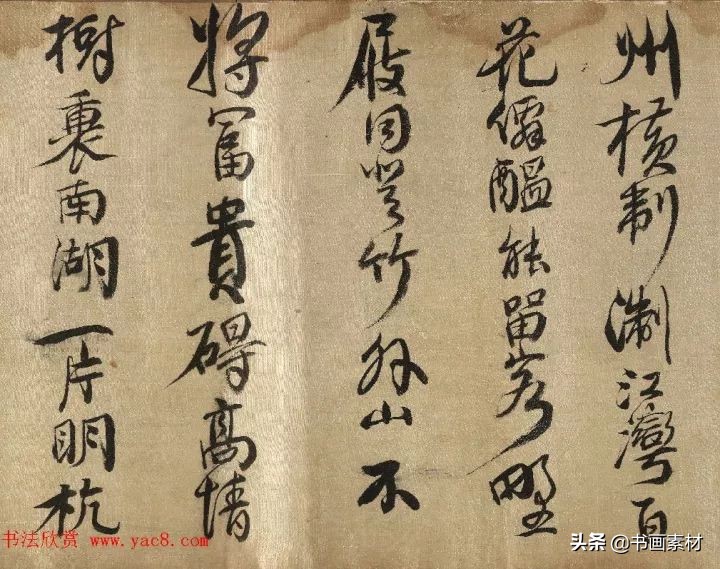 州橫制淛江灣百
花僊醖能留客野
屐同登竹外山不
將富貴碍高情
樹裏南湖一片明杭
书法欣赏 www.yac8.com
头条 @书画素材